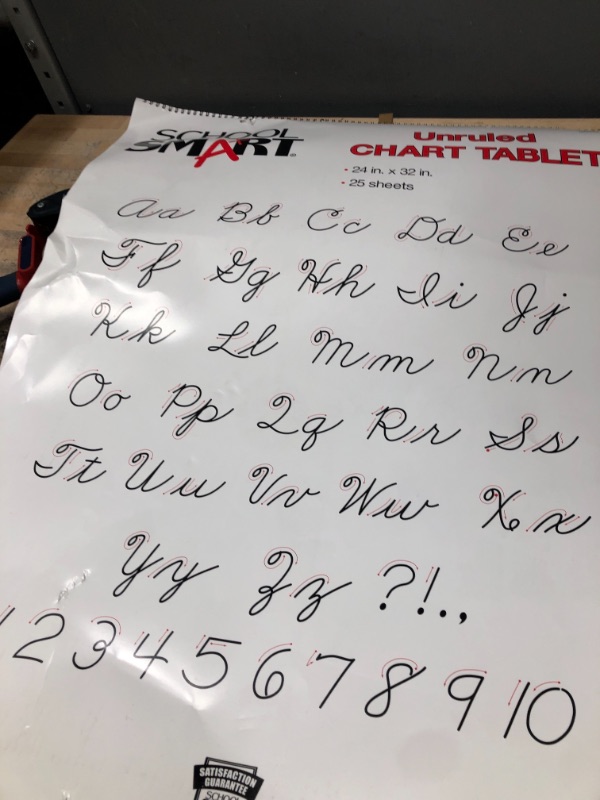 SCHOOL SMART®
Unruled
CHART TABLET
• 24 in. x 32 in.
• 25 sheets
Aa Bb Cc Dd Ee
Ff Gg Hh Ii Jj
Kk Ll Mm Nn
Oo Pp Qq Rr Ss
Tt Uu Vv Ww Xx
Yy Zz ?!.,
1 2 3 4 5 6 7 8 9 10
SATISFACTION
GUARANTEE
SCHOOL